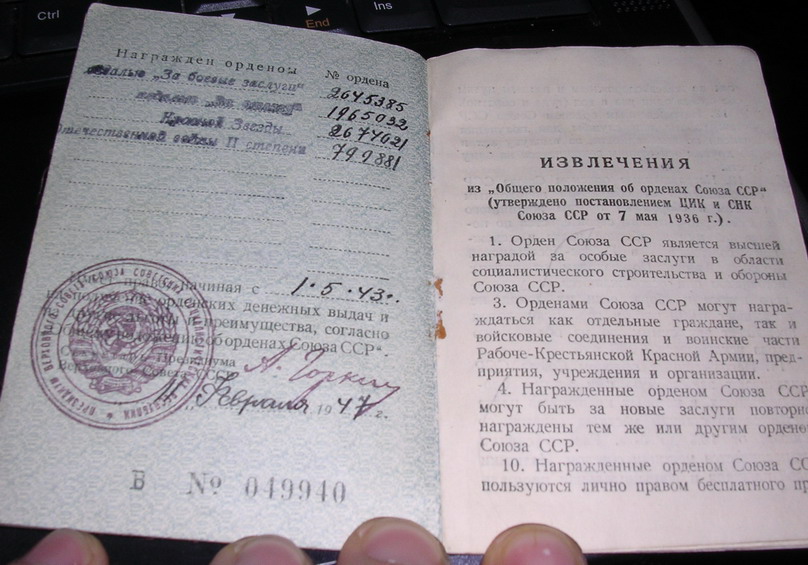 Ctrl
End
Ins
Награжден орденом № ордена
медалью „За боевые заслуги“ 2645385
медалью 1965032
Красной Звезды 2677021
Отечественной войны II степени 799881
право, начиная с 1·5·43г.
орденских денежных выдач и
преимущества, согласно
об орденах Союза ССР“.
Президиума
Верховного Совета СССР А. Горкин
11 Февраля 1947 г.
В № 049940
ИЗВЛЕЧЕНИЯ
из „Общего положения об орденах Союза ССР“
(утверждено постановлением ЦИК и СНК
Союза ССР от 7 мая 1936 г.).
1. Орден Союза ССР является высшей
наградой за особые заслуги в области
социалистического строительства и обороны
Союза ССР.
3. Орденами Союза ССР могут награ-
ждаться как отдельные граждане, так и
войсковые соединения и воинские части
Рабоче-Крестьянской Красной Армии, пред-
приятия, учреждения и организации.
4. Награжденные орденом Союза ССР
могут быть за новые заслуги повторно
награждены тем же или другим орденом
Союза ССР.
10. Награжденные орденом Союза СС
пользуются лично правом бесплатного пр